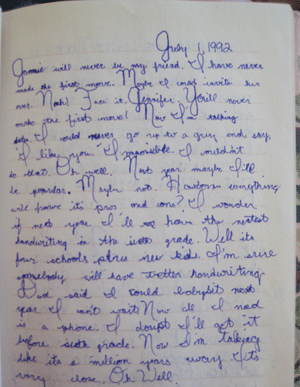 July 1, 1992
Jamie will never be my friend. I have never
made the first move. Maybe I could invite him
over. Nah! Face it, Jennifer, You'll never
make the first move! Now I'm talking
I could never go up to a guy and say,
I like you. Impossible. I couldn't
do that. Oh well. Next year maybe I'll
be popular. Maybe not. everything
will prove its pros and cons? I wonder
if next year I'll have the neatest
handwriting in the sixth grade. Well its
four schools plus new kids. I'm sure
somebody will have better handwriting.
Dad said I could babysit next
year I can't wait. Now all I need
is a phone. I doupt I'll get it
before sixth grade. Now I'm talking
like its a million years away. It's
very close. Oh Well